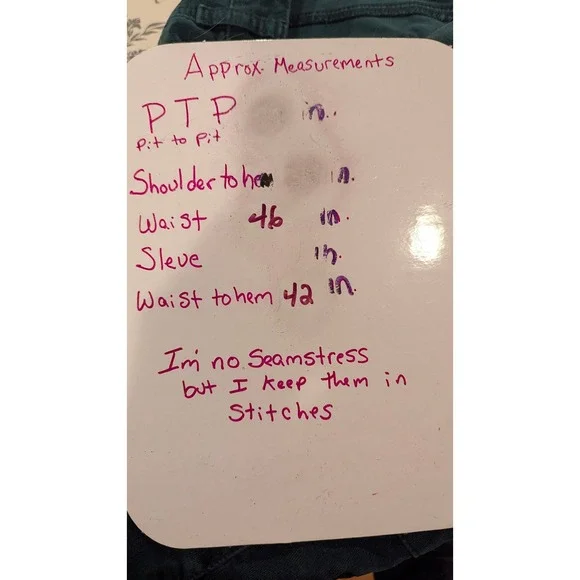 Approx. Measurements
PTP in.
Pit to Pit
Shoulder to hem in.
Waist 46 in.
Sleve in.
Waist to hem 42 in.
I'm no Seamstress
but I keep them in
Stitches